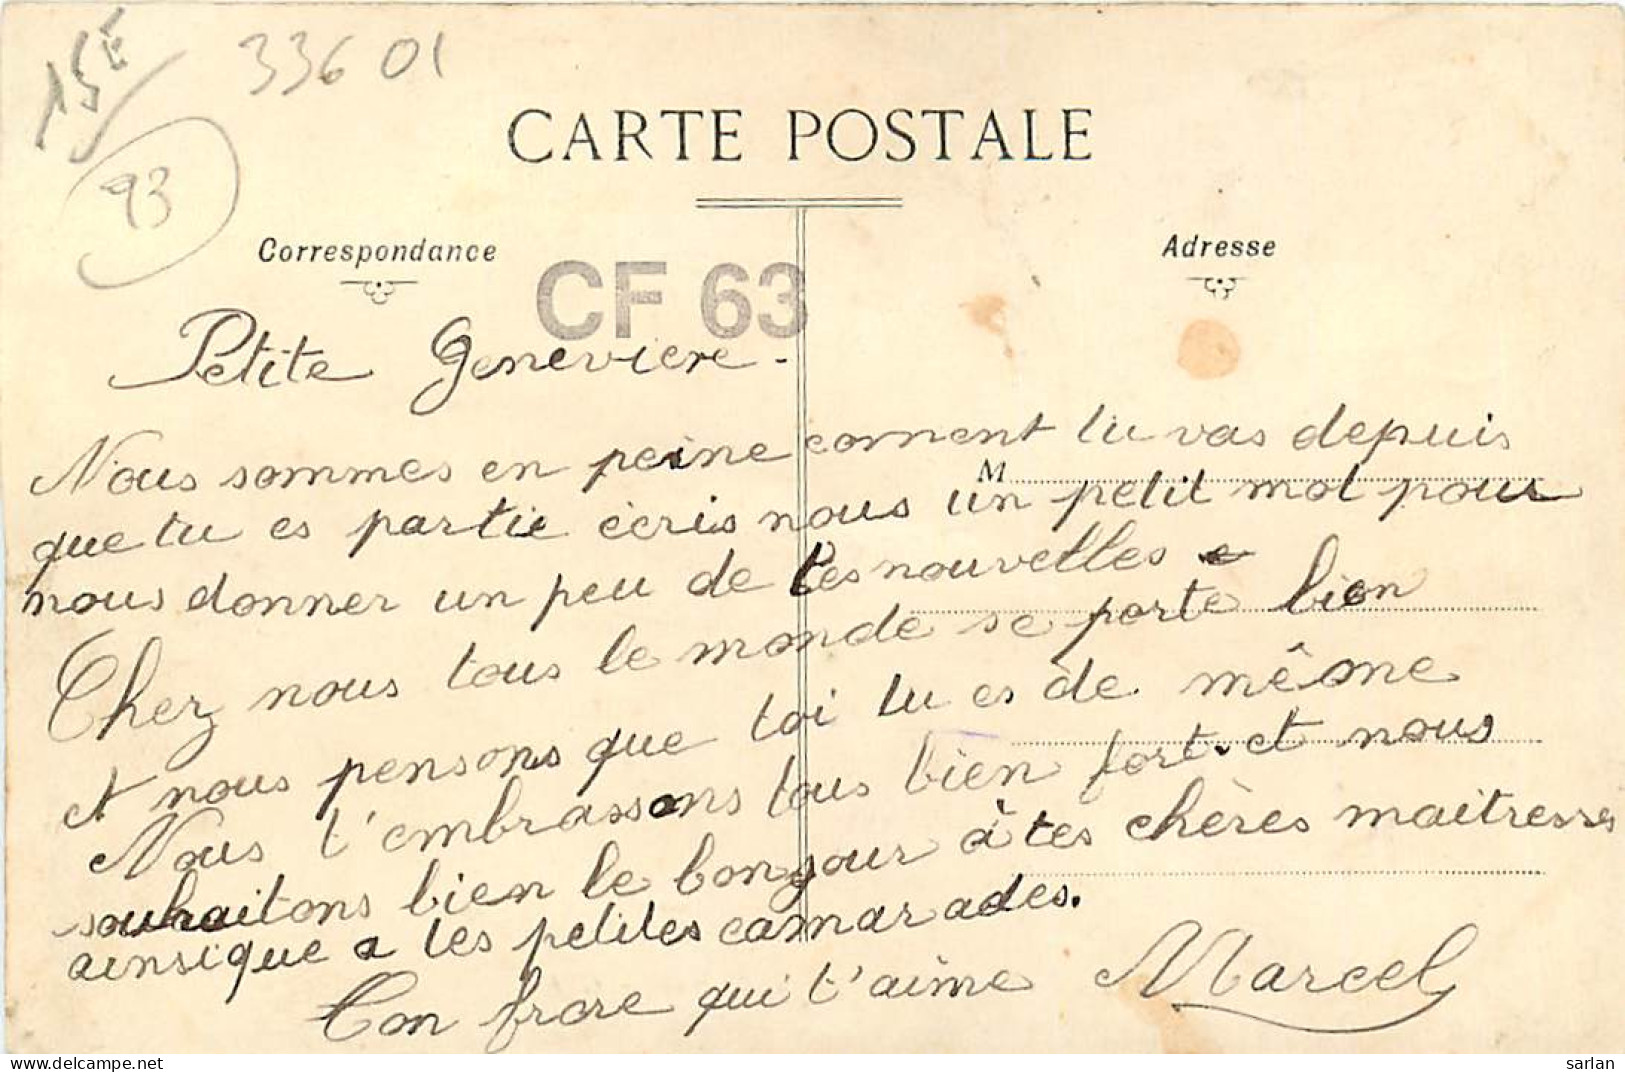 15 €
33601
93
CARTE POSTALE
Correspondance
Adresse
CF 63
Petite Genevieve -
Nous sommes en peine coment tu vas depuis
M
que tu es partie écris nous un petit mot pour
nous donner un peu de tes nouvelles
Chez nous tous le monde se porte bien
et nous pensons que toi tu es de même
Nous t'embrassons tous bien fort. et nous
souhaitons bien le bonjour à tes chères maitresses
ainsi que a tes petites camarades.
Ton frere qui t'aime Marcel
sarlan